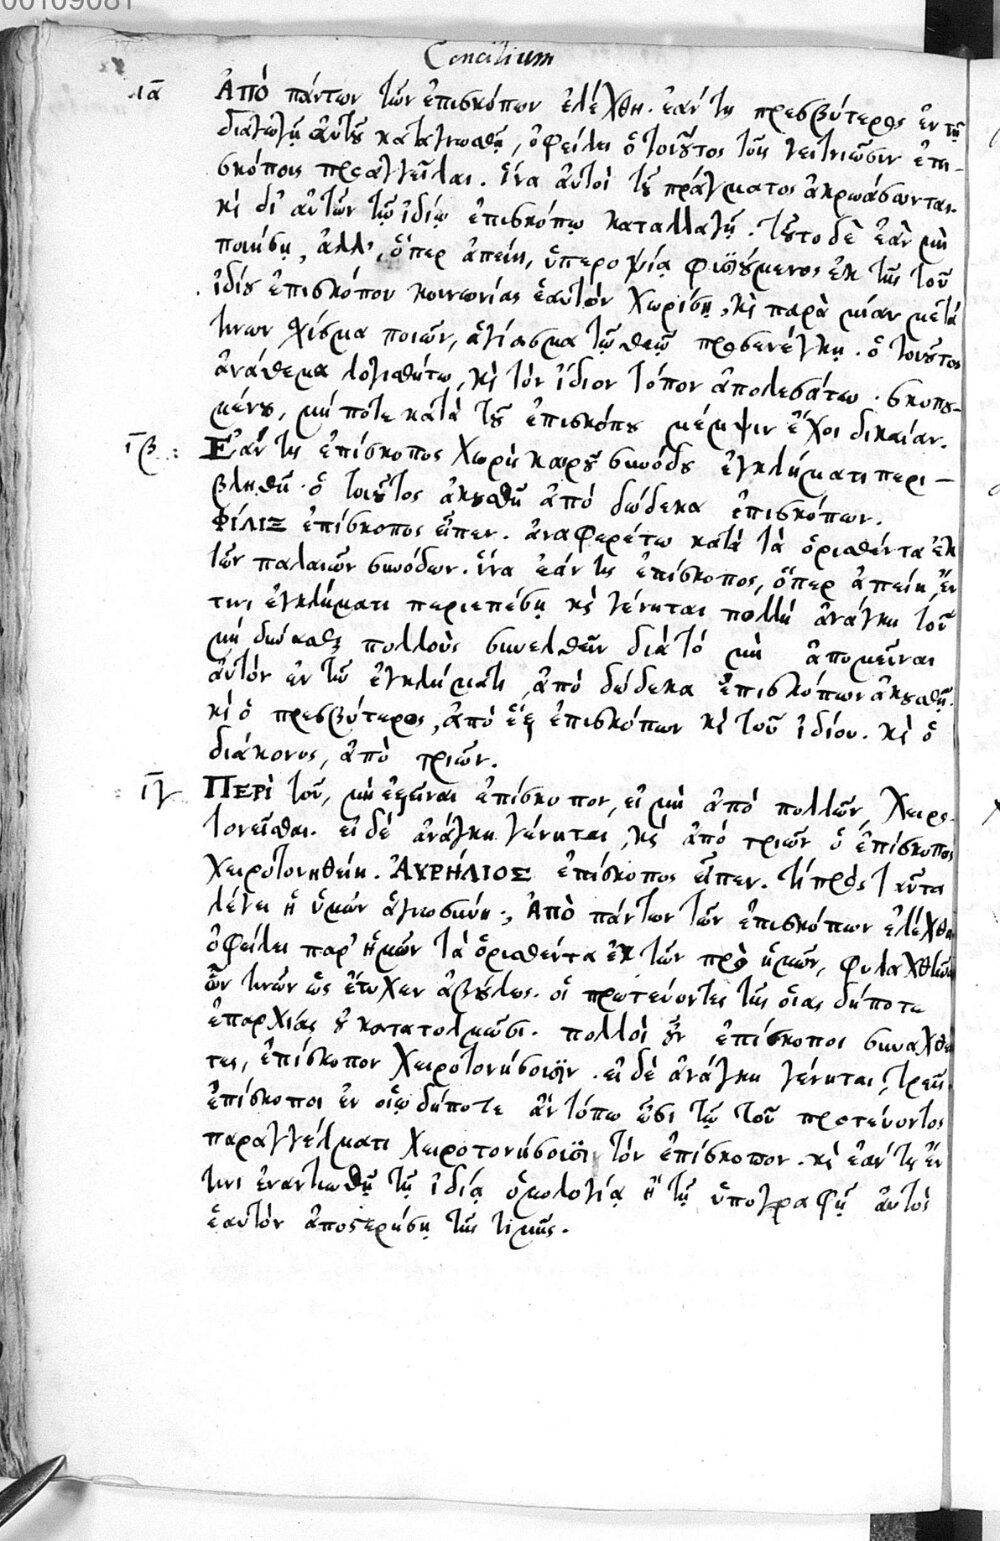 00109081
Concilium
ια Ἀπὸ πάντων τῶν ἐπισκόπων ἐλέχθη. ἐάν τις πρεσβύτερος ἐν τῇ
διαγωγῇ αὐτοῦ καταγνωσθῇ, ὀφείλει ὁ τοιοῦτος τοῖς γειτνιῶσιν ἐπι-
σκόποις προσαγγεῖλαι. ἵνα αὐτοὶ τοῦ πράγματος ἀκροάσωνται.
κὶ δι' αὐτῶν τῷ ἰδίῳ ἐπισκόπῳ καταλλαγῇ. τοῦτο δὲ ἐὰν μὴ
ποιήσῃ, ἀλλ', ὅπερ ἀπείη, ὑπεροψίᾳ φυσιούμενος ἐκ τῆς τοῦ
ἰδίου ἐπισκόπου κοινωνίας ἑαυτὸν χωρίσῃ, κὶ παρὰ μίαν μετά
τινων σχίσμα ποιῶν, ἁγίασμα τῷ θεῷ προσενέγκῃ. ὁ τοιοῦτος
ἀνάθεμα λογισθήτω, κὶ τὸν ἴδιον τόπον ἀπολεσάτω. σκοπου-
μένου, μή ποτε κατὰ τοῦ ἐπισκόπου μέμψιν ἔχοι δικαίαν.
ιβ Ἐάν τις ἐπίσκοπος χωρὶς καιροῦ συνόδου ἐγκλήματι περι-
βληθῇ. ὁ τοιοῦτος ἀκουσθῇ ἀπὸ δώδεκα ἐπισκόπων.
Φίλιξ ἐπίσκοπος εἶπεν. ἀναφερέτω κατὰ τὰ ὁρισθέντα ἐκ
τῶν παλαιῶν συνόδων. ἵνα ἐάν τις ἐπίσκοπος, ὅπερ ἀπείη, ἔν
τινι ἐγκλήματι περιεπέσῃ κὶ γένηται πολλὴ ἀνάγκη τοῦ
μὴ δύνασθαι πολλοὺς συνελθεῖν διὰ τὸ μὴ ἀπομεῖναι
αὐτὸν ἐν τῷ ἐγκλήματι, ἀπὸ δώδεκα ἐπισκόπων ἀκουσθῇ.
κὶ ὁ πρεσβύτερος, ἀπὸ ἓξ ἐπισκόπων κὶ τοῦ ἰδίου. κὶ ὁ
διάκονος, ἀπὸ τριῶν.
ιγ Περὶ τοῦ, μὴ ἐξεῖναι ἐπίσκοπον, εἰ μὴ ἀπὸ πολλῶν, χειρο-
τονεῖσθαι. εἰ δὲ ἀνάγκη γένηται, κὶ ἀπὸ τριῶν ὁ ἐπίσκοπος
χειροτονηθείη. Ἀυρήλιος ἐπίσκοπος εἶπεν. τί πρὸς ταῦτα
λέγει ἡ ὑμῶν ἁγιωσύνη; Ἀπὸ πάντων τῶν ἐπισκόπων ἐλέχθη
ὀφείλει παρ' ἡμῶν τὰ ὁρισθέντα ἐκ τῶν πρὸ ἡμῶν, φυλαχθῆναι
ὧν τινῶν ὡς ἔτυχεν ἀβούλως. οἱ πρωτεύοντες τῆς οἵας δήποτε
ἐπαρχίας οὐ κατατολμῶσι. πολλοὶ οὖν ἐπίσκοποι συναχθέν
τες, ἐπίσκοπον χειροτονήσουσιν. εἰ δὲ ἀνάγκη γένηται, τρεῖς
ἐπίσκοποι ἐν οἵῳ δήποτε ἂν τόπῳ ὦσι τῷ τοῦ πρωτεύοντος
παραγγέλματι χειροτονήσουσι τὸν ἐπίσκοπον. κὶ ἐάν τις ἔν
τινι ἐναντιωθῇ τῇ ἰδίᾳ ὁμολογίᾳ ἢ τῇ ὑπογραφῇ αὐτὸς
ἑαυτὸν ἀποστερήσῃ τῆς τιμῆς.